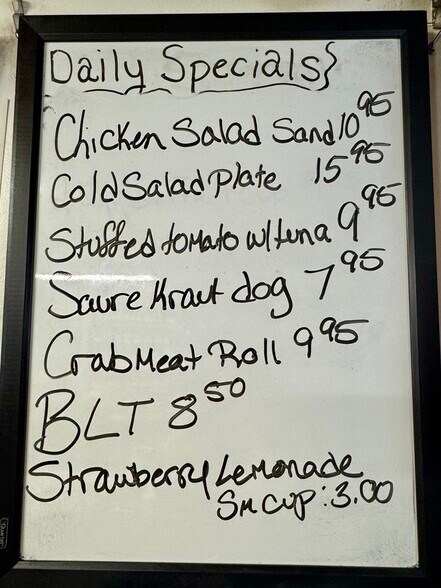 Daily Specials
Chicken Salad Sand 10 95
Cold Salad Plate 15 95
Stuffed tomato w/tuna 9 95
Saure Kraut dog 7 95
Crab Meat Roll 9 95
BLT 8 50
Strawberry Lemonade
Sm cup: 3.00
Quartet